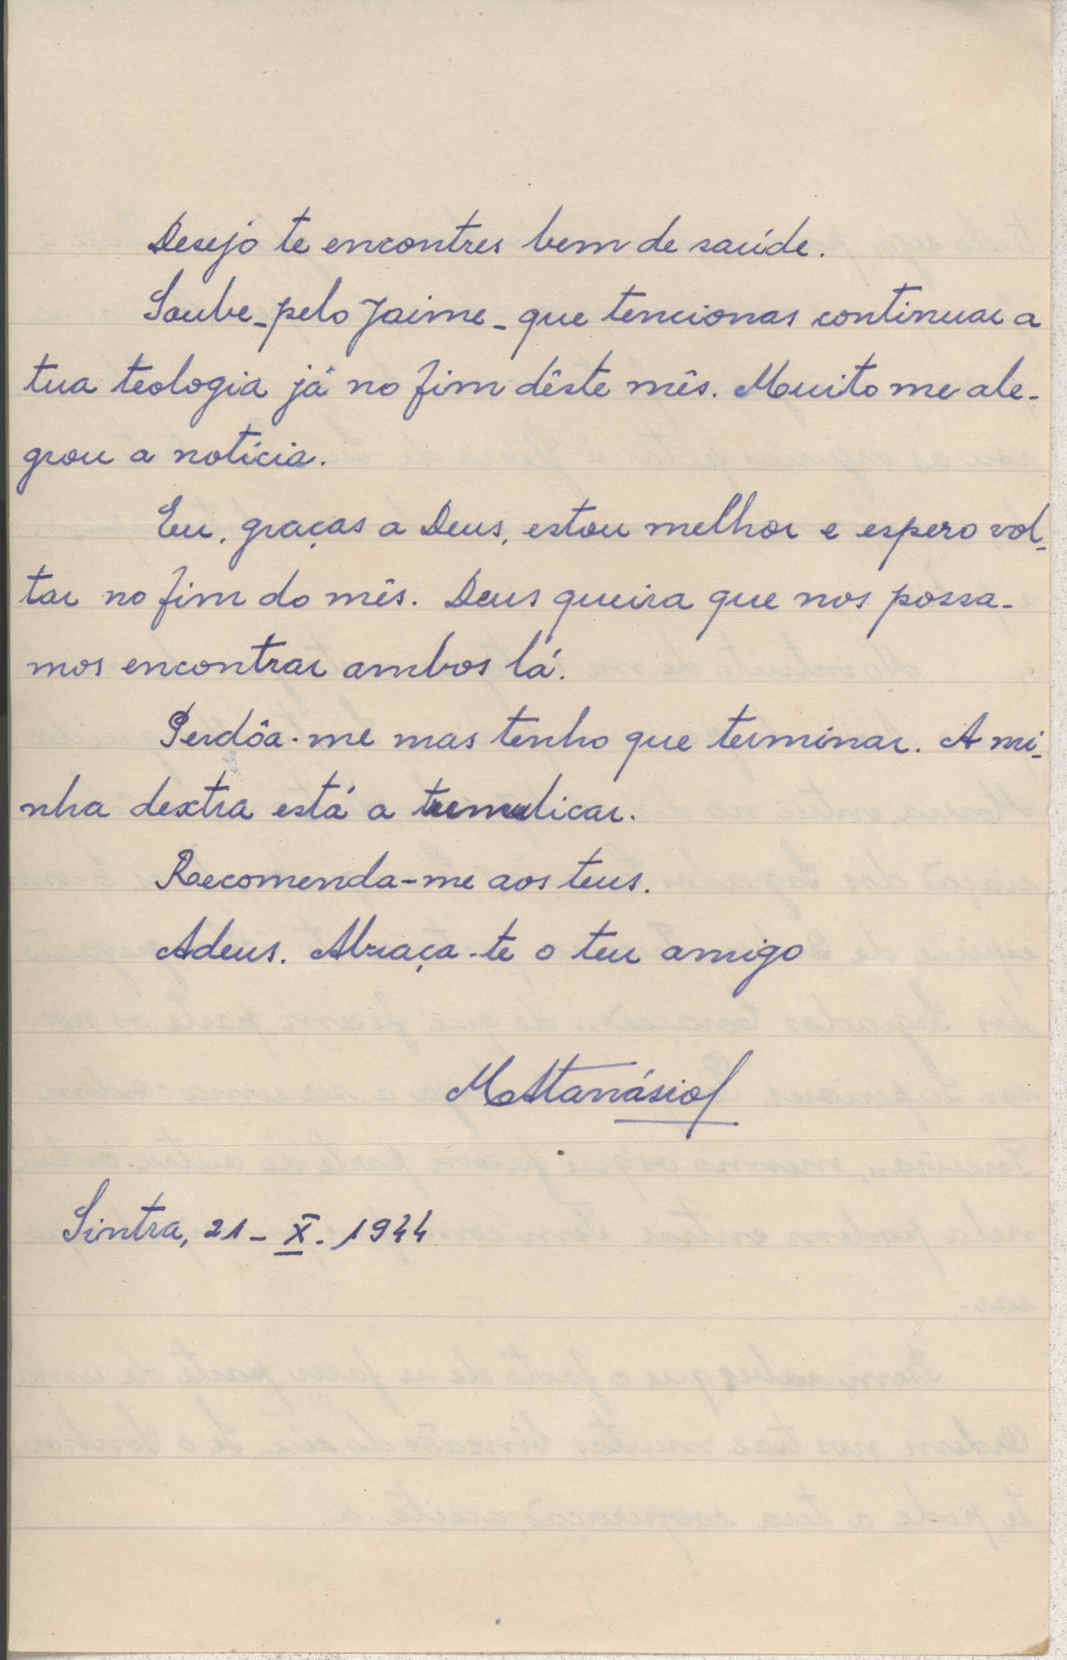 Desejo te encontres bem de saúde.
Soube - pelo Jaime - que tencionas continuar a
tua teologia já no fim dêste mês. Muito me ale-
grou a notícia.
Eu, graças a Deus, estou melhor e espero vol-
tar no fim do mês. Deus queira que nos possa-
mos encontrar ambos lá.
Perdôa-me mas tenho que terminar. A mi-
nha dextra está a tremelicar.
Recomenda-me aos teus.
Adeus. Abraça-te o teu amigo
MAtanásio
Sintra, 21 - X - 1944